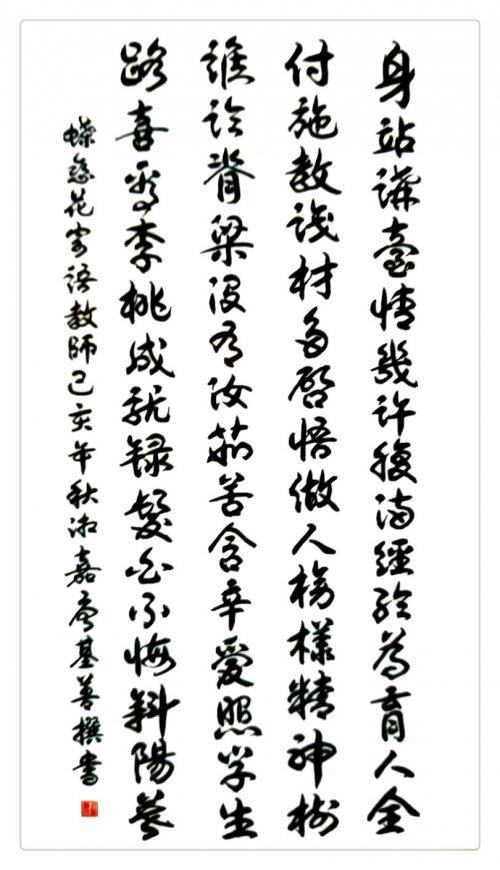 身站講臺情幾許腹滿經綸為育人全
付施教識材多啓悟做人榜樣精神樹
誰論脊梁沒有汝茹苦含辛愛照學生
路喜看李桃成就錄髮白不悔斜陽暮
蝶戀花寄語教師己亥年秋淑嘉基善撰書